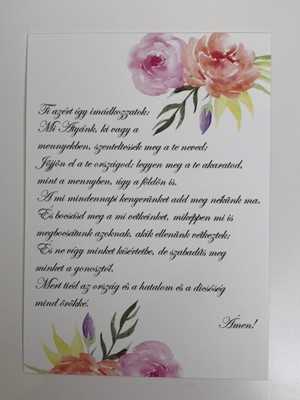 Ti azért így imádkozzatok:
Mi Atyánk, ki vagy a
mennyekben, szenteltessék meg a te neved;
Jöjjön el a te országod; legyen meg a te akaratod,
mint a mennyben, úgy a földön is.
A mi mindennapi kenyerünket add meg nékünk ma.
És bocsásd meg a mi vétkeinket, miképpen mi is
megbocsátunk azoknak, akik ellenünk vétkeztek;
És ne vígy minket kísértetbe, de szabadíts meg
minket a gonosztól.
Mert tiéd az ország és a hatalom és a dicsőség
mind örökké.
Ámen!